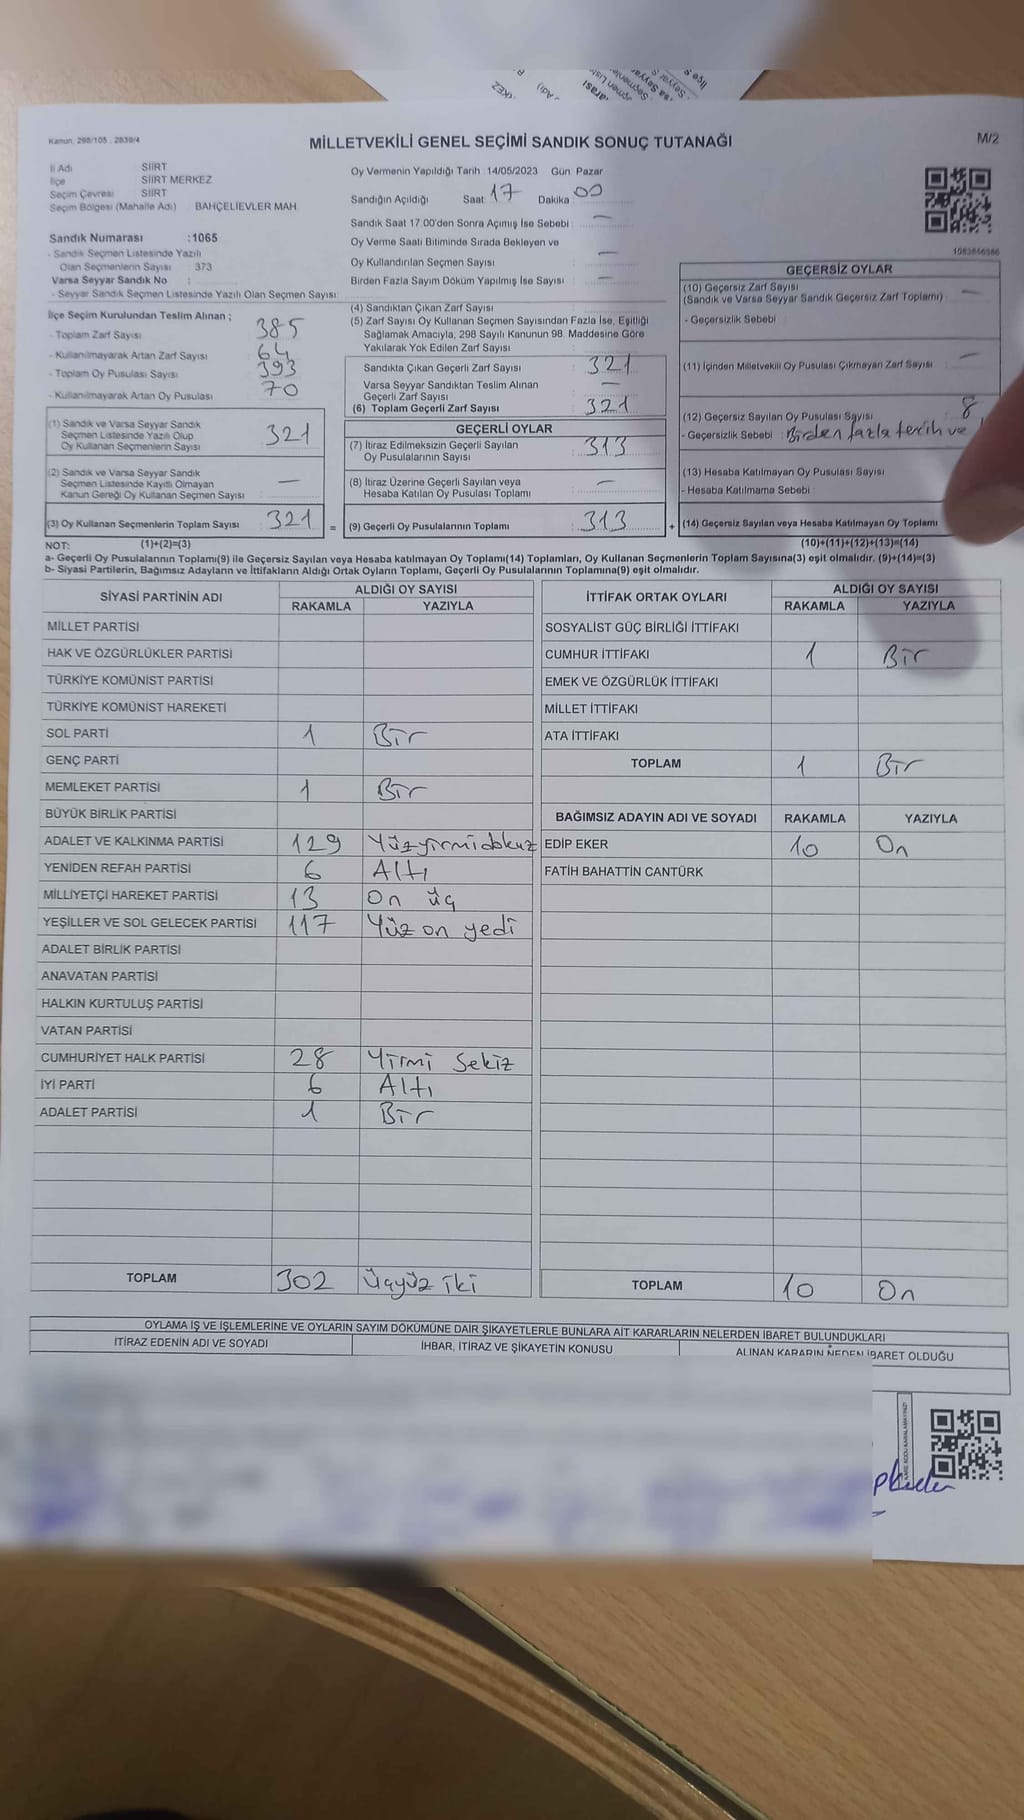 Kanun, 298/105 , 2839/4
MİLLETVEKİLİ GENEL SEÇİMİ SANDIK SONUÇ TUTANAĞI
M/2
İl Adı SİİRT
İlçe SİİRT MERKEZ
Seçim Çevresi SİİRT
Seçim Bölgesi (Mahalle Adı) BAHÇELİEVLER MAH.
Oy Vermenin Yapıldığı Tarih : 14/05/2023 Gün: Pazar
Sandığın Açıldığı Saat: 17 Dakika : 00
Sandık Saat 17.00'den Sonra Açımış İse Sebebi : —
Oy Verme Saati Bitiminde Sırada Bekleyen ve
Oy Kullandırılan Seçmen Sayısı : —
Birden Fazla Sayım Döküm Yapılmış İse Sayısı : —
Sandık Numarası :1065
- Sandık Seçmen Listesinde Yazılı
Olan Seçmenlerin Sayısı : 373
Varsa Seyyar Sandık No :
- Seyyar Sandık Seçmen Listesinde Yazılı Olan Seçmen Sayısı:
İlçe Seçim Kurulundan Teslim Alınan ;
- Toplam Zarf Sayısı 385
- Kullanılmayarak Artan Zarf Sayısı 64
- Toplam Oy Pusulası Sayısı 393
- Kullanılmayarak Artan Oy Pusulası 70
(1) Sandık ve Varsa Seyyar Sandık
Seçmen Listesinde Yazılı Olup
Oy Kullanan Seçmenlerin Sayısı 321
(2) Sandık ve Varsa Seyyar Sandık
Seçmen Listesinde Kayıtlı Olmayan
Kanun Gereği Oy Kullanan Seçmen Sayısı —
(3) Oy Kullanan Seçmenlerin Toplam Sayısı 321
(4) Sandıktan Çıkan Zarf Sayısı
(5) Zarf Sayısı Oy Kullanan Seçmen Sayısından Fazla İse, Eşitliği
Sağlamak Amacıyla, 298 Sayılı Kanunun 98. Maddesine Göre
Yakılarak Yok Edilen Zarf Sayısı :
Sandıkta Çıkan Geçerli Zarf Sayısı : 321
Varsa Seyyar Sandıktan Teslim Alınan
Geçerli Zarf Sayısı : —
(6) Toplam Geçerli Zarf Sayısı : 321
GEÇERLİ OYLAR
(7) İtiraz Edilmeksizin Geçerli Sayılan
Oy Pusulalarının Sayısı : 313
(8) İtiraz Üzerine Geçerli Sayılan veya
Hesaba Katılan Oy Pusulası Toplamı : —
= (9) Geçerli Oy Pusulalarının Toplamı : 313 +
1083856986
GEÇERSİZ OYLAR
(10) Geçersiz Zarf Sayısı
(Sandık ve Varsa Seyyar Sandık Geçersiz Zarf Toplamı) : —
- Geçersizlik Sebebi :
(11) İçinden Milletvekili Oy Pusulası Çıkmayan Zarf Sayısı : —
(12) Geçersiz Sayılan Oy Pusulası Sayısı : 8
- Geçersizlik Sebebi : Birden fazla tercih ve
(13) Hesaba Katılmayan Oy Pusulası Sayısı
- Hesaba Katılmama Sebebi :
(14) Geçersiz Sayılan veya Hesaba Katılmayan Oy Toplamı
NOT: (1)+(2)=(3) (10)+(11)+(12)+(13)=(14)
a- Geçerli Oy Pusulalarının Toplamı(9) ile Geçersiz Sayılan veya Hesaba katılmayan Oy Toplamı(14) Toplamları, Oy Kullanan Seçmenlerin Toplam Sayısına(3) eşit olmalıdır. (9)+(14)=(3)
b- Siyasi Partilerin, Bağımsız Adayların ve İttifakların Aldığı Ortak Oyların Toplamı, Geçerli Oy Pusulalarının Toplamına(9) eşit olmalıdır.
SİYASİ PARTİNİN ADI ALDIĞI OY SAYISI
RAKAMLA YAZIYLA
MİLLET PARTİSİ
HAK VE ÖZGÜRLÜKLER PARTİSİ
TÜRKİYE KOMÜNİST PARTİSİ
TÜRKİYE KOMÜNİST HAREKETİ
SOL PARTİ 1 Bir
GENÇ PARTİ
MEMLEKET PARTİSİ 1 Bir
BÜYÜK BİRLİK PARTİSİ
ADALET VE KALKINMA PARTİSİ 129 Yüzyirmidokuz
YENİDEN REFAH PARTİSİ 6 Altı
MİLLİYETÇİ HAREKET PARTİSİ 13 On üç
YEŞİLLER VE SOL GELECEK PARTİSİ 117 Yüz on yedi
ADALET BİRLİK PARTİSİ
ANAVATAN PARTİSİ
HALKIN KURTULUŞ PARTİSİ
VATAN PARTİSİ
CUMHURİYET HALK PARTİSİ 28 Yirmi Sekiz
İYİ PARTİ 6 Altı
ADALET PARTİSİ 1 Bir
TOPLAM 302 Üçyüz iki
İTTİFAK ORTAK OYLARI ALDIĞI OY SAYISI
RAKAMLA YAZIYLA
SOSYALİST GÜÇ BİRLİĞİ İTTİFAKI
CUMHUR İTTİFAKI 1 Bir
EMEK VE ÖZGÜRLÜK İTTİFAKI
MİLLET İTTİFAKI
ATA İTTİFAKI
TOPLAM 1 Bir
BAĞIMSIZ ADAYIN ADI VE SOYADI RAKAMLA YAZIYLA
EDİP EKER 10 On
FATİH BAHATTİN CANTÜRK
TOPLAM 10 On
OYLAMA İŞ VE İŞLEMLERİNE VE OYLARIN SAYIM DÖKÜMÜNE DAİR ŞİKAYETLERLE BUNLARA AİT KARARLARIN NELERDEN İBARET BULUNDUKLARI
İTİRAZ EDENİN ADI VE SOYADI İHBAR, İTİRAZ VE ŞİKAYETİN KONUSU ALINAN KARARIN NEDEN İBARET OLDUĞU